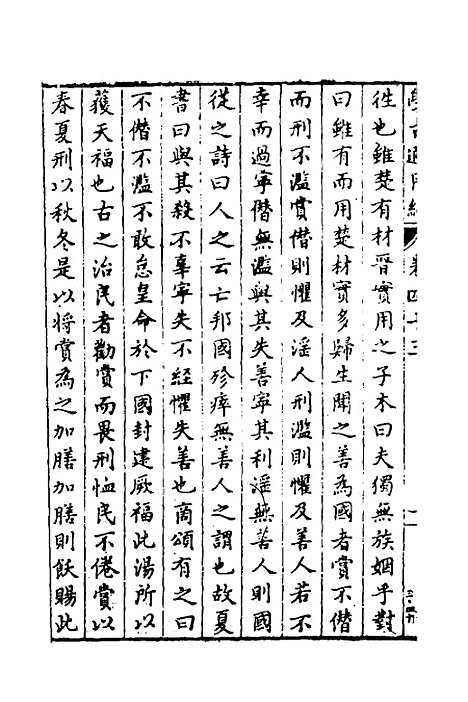 往也雖楚有材晉實用之子木曰夫獨無族姻乎對
曰雖有而用楚材實多歸生聞之善為國者賞不僭
而刑不濫賞僭則懼及淫人刑濫則懼及善人若不
幸而過寧僭無濫與其失善寧其利淫無善人則國
從之詩曰人之云亡邦國殄瘁無善人之謂也故夏
書曰與其殺不辜寧失不經懼失善也商頌有之曰
不僭不濫不敢怠皇命於下國封建厥福此湯所以
獲天福也古之治民者勸賞而畏刑恤民不倦賞以
春夏刑以秋冬是以將賞為之加膳加膳則飫賜此